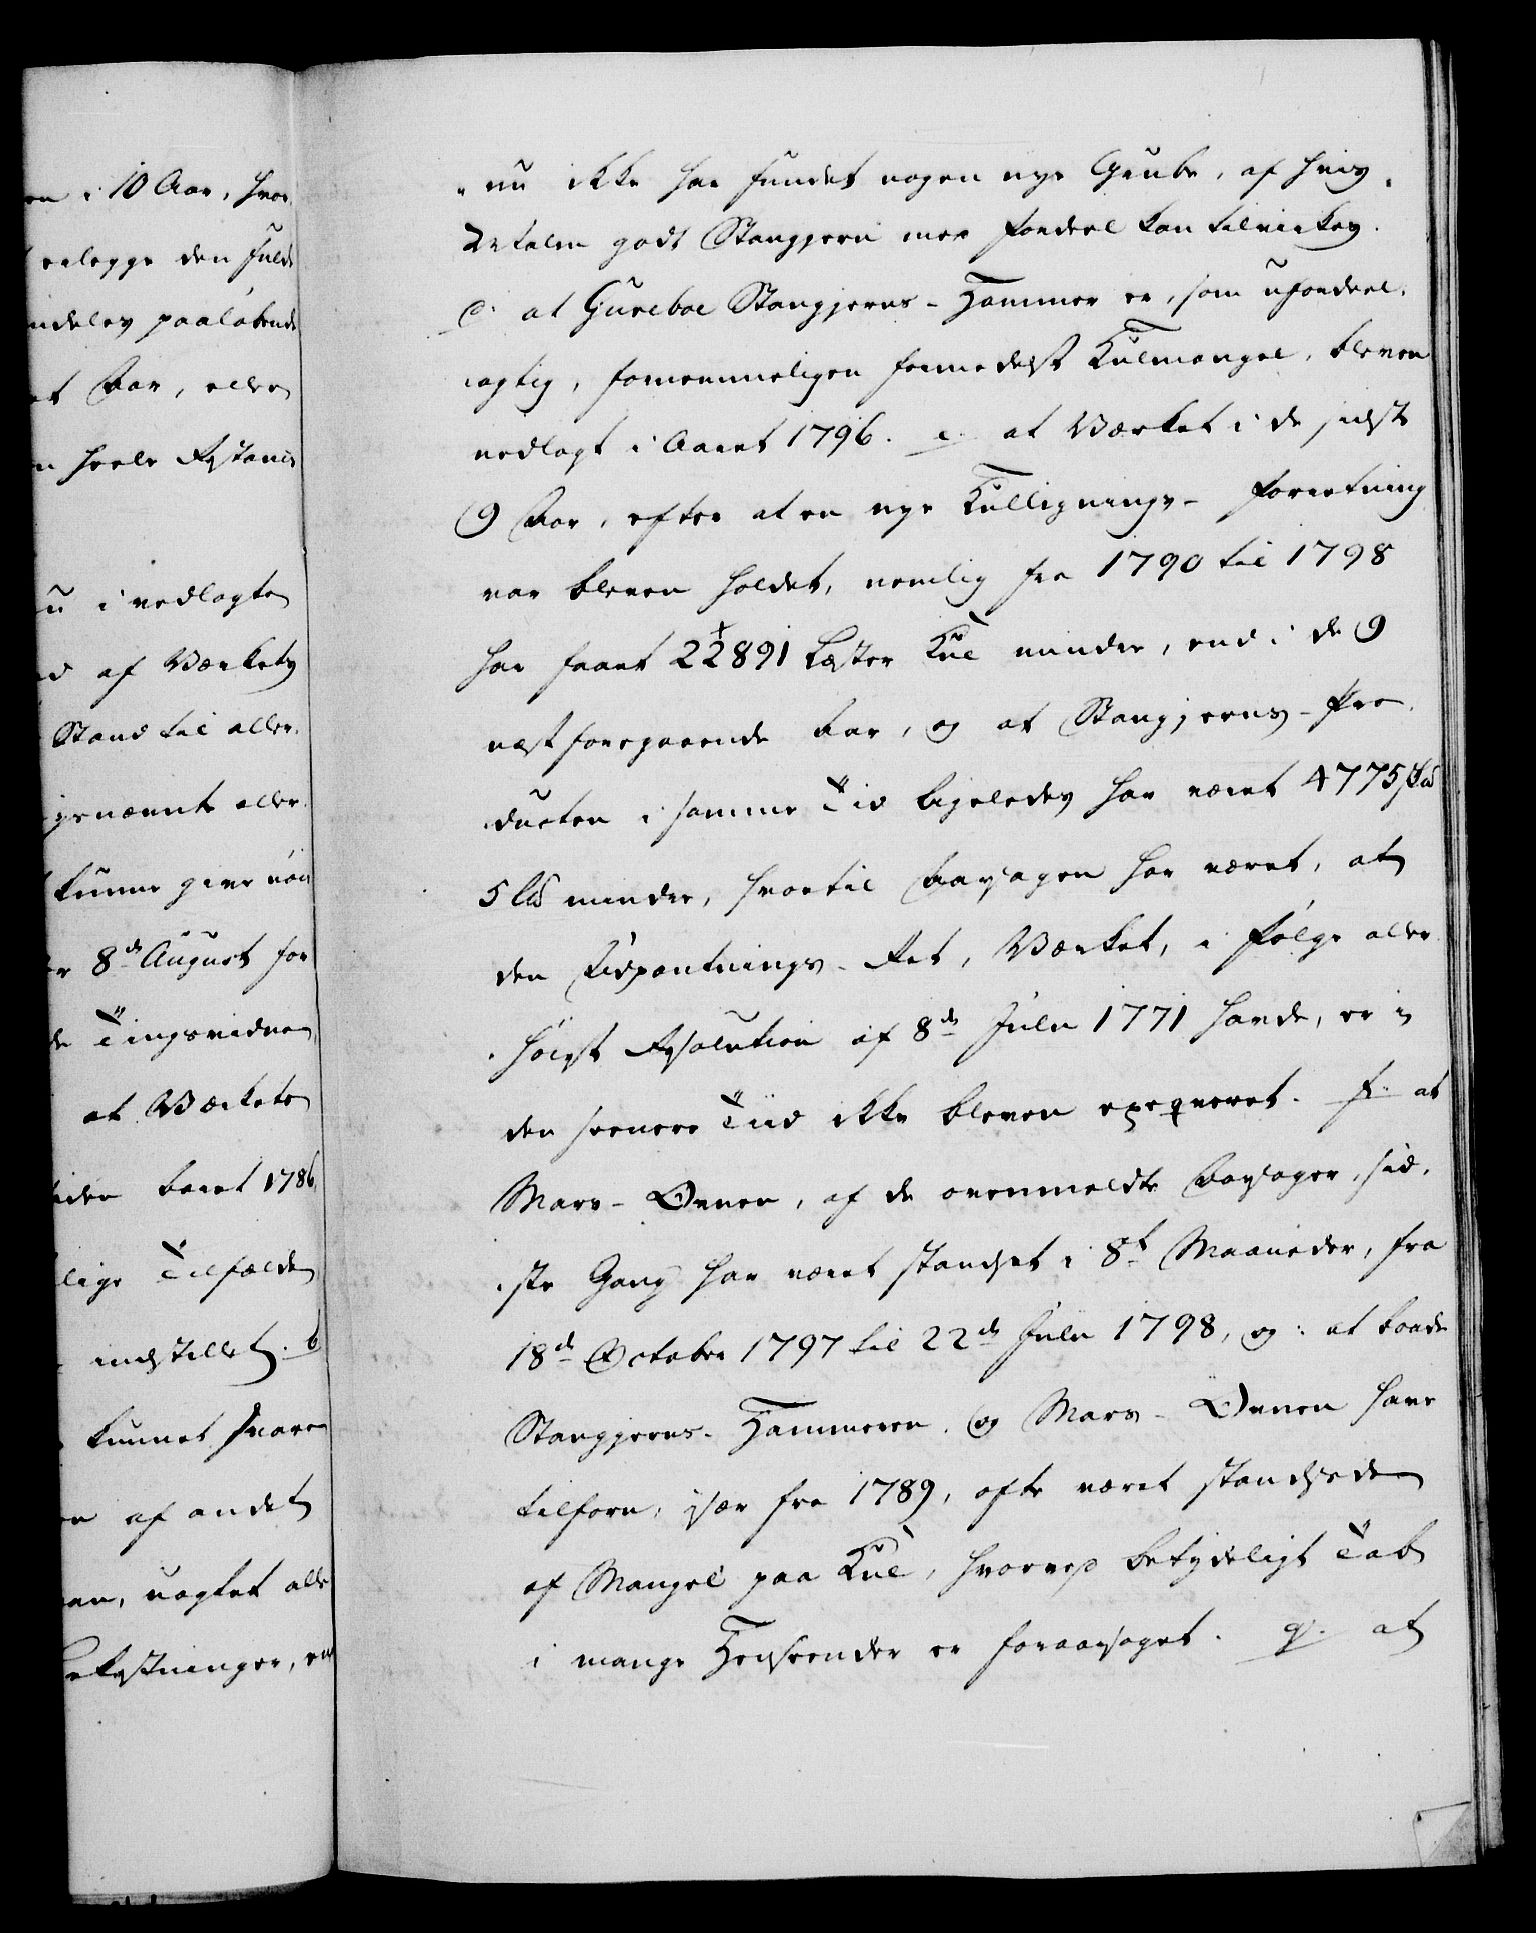 en i 10 Aar, hvor
erlegge den fulde
ndeles paaløbende
et Aar, eller
n heele Restance
u i vedlagte
d af Værkets
Stand til aller-
genævnte aller-
kunne give nøi
er 8de August for
de Tingsvidne
at Værkets
siden Aaret 1786,
lige Tilfælde
indstillet. b
kunnet svare
en af andet
an, uagtet alle
Bekostninger, en
nu ikke har fundet nogen nye Grube, af hvis
Malm godt Stangjern med Fordeel kan tilvirkes.
d. at Gureboe Stangjerns-Hammer er, som ufordeel-
agtig, fornemmeligen formedelst Kulmangel, bleven
nedlagt i Aaret 1796. e. at Værket i de sidste
9 Aar, efter at en nye Kullignings-Forretning
var bleven holdet, nemlig fra 1790 til 1798
har faaet 22891 Læster Kul mindre, end i de 9
næstforegaaende Aar, og at Stangjerns-Pro-
ducten i samme Tid ligeledes har været 4775 Sk℔
5 L℔ mindre, hvortil Aarsagen har været, at
den Udpantnings-Ret, Værket, i Følge aller-
høist Resolution af 8de Julii 1771 havde, er i
den seenere Tiid ikke bleven exeqveret. f. at
Mars-Ovnen, af de ovenmeldte Aarsager, sid-
ste Gang har været standset i 8t Maaneder, fra
18de October 1797 til 22de Julii 1798, og: at baade
Stangjerns-Hammeren og Mars-Ovnen have
tilforn, især fra 1789, ofte været standsede
af Mangel paa Kul, hvorved betydeligt Tab
i mange Henseender er foraarsaget. g. at